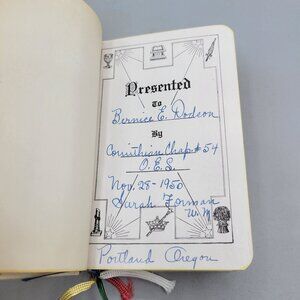 Presented
To
Bernice E. Dodson
By
Corinthian Chap # 54
O.E.S.
Nov. 28 - 1950
Sarah Forman
W.M.
Portland Oregon